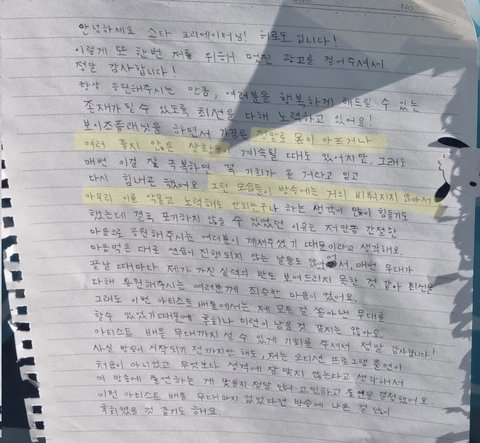 안녕하세요 스타 크리에이터님! 히로토 입니다!
이렇게 또 한번 저를 위해 멋진 광고를 걸어주셔서
정말 감사합니다!
항상 응원해주시는 만큼, 여러분을 행복하게 해드릴 수 있는
존재가 될 수 있도록 최선을 다해 노력하고 있어요!
보이즈플래닛을 하면서 가끔은 정말로 몸이 아프거나
여러 좋지 않은 상황이 계속될 때도 있었지만, 그래도
매번 이걸 잘 극복하면 꼭 기회가 올 거라고 믿고
다시 힘내곤 했어요! 그런 모습들이 방송에는 거의 비춰지지 않아서
아무리 이를 악물고 노력해도 안되는구나 하는 생각에 많이 힘들기도
했는데 결국 포기하지 않을 수 있었던 이유는 저만큼 간절한
마음으로 응원해주시는 여러분이 계셔주셨기 때문이라고 생각해요.
마음먹은 대로 연습이 진행되지 않는 날들도 많아서, 매번 무대가
끝날 때마다 제가 가진 실력의 반도 보여드리지 못한 것 같아 최선을
다해 응원해주시는 여러분께 죄송한 마음이 있어요.
그래도 이번 아티스트 배틀에서는 제 모든 걸 쏟아낸 무대를
할 수 있었기 때문에 후회나 미련이 남을 것 같지는 않아요.
아티스트 배틀 무대까지 설 수 있게 기회를 주셔서 정말 감사합니다!
사실 방송이 시작되기 전까지만 해도, 저는 오디션 프로그램 출연이
처음이 아니었고 무엇보다 성격에 잘 맞지 않는다고 생각해서
이 방송에 출연하는 게 맞을지 정말 많이 고민하고 출연을 결정했어요.
이번 아티스트 배틀 무대까지 없었다면 방송에 나온 걸 많이
후회했을 것 같기도 해요.